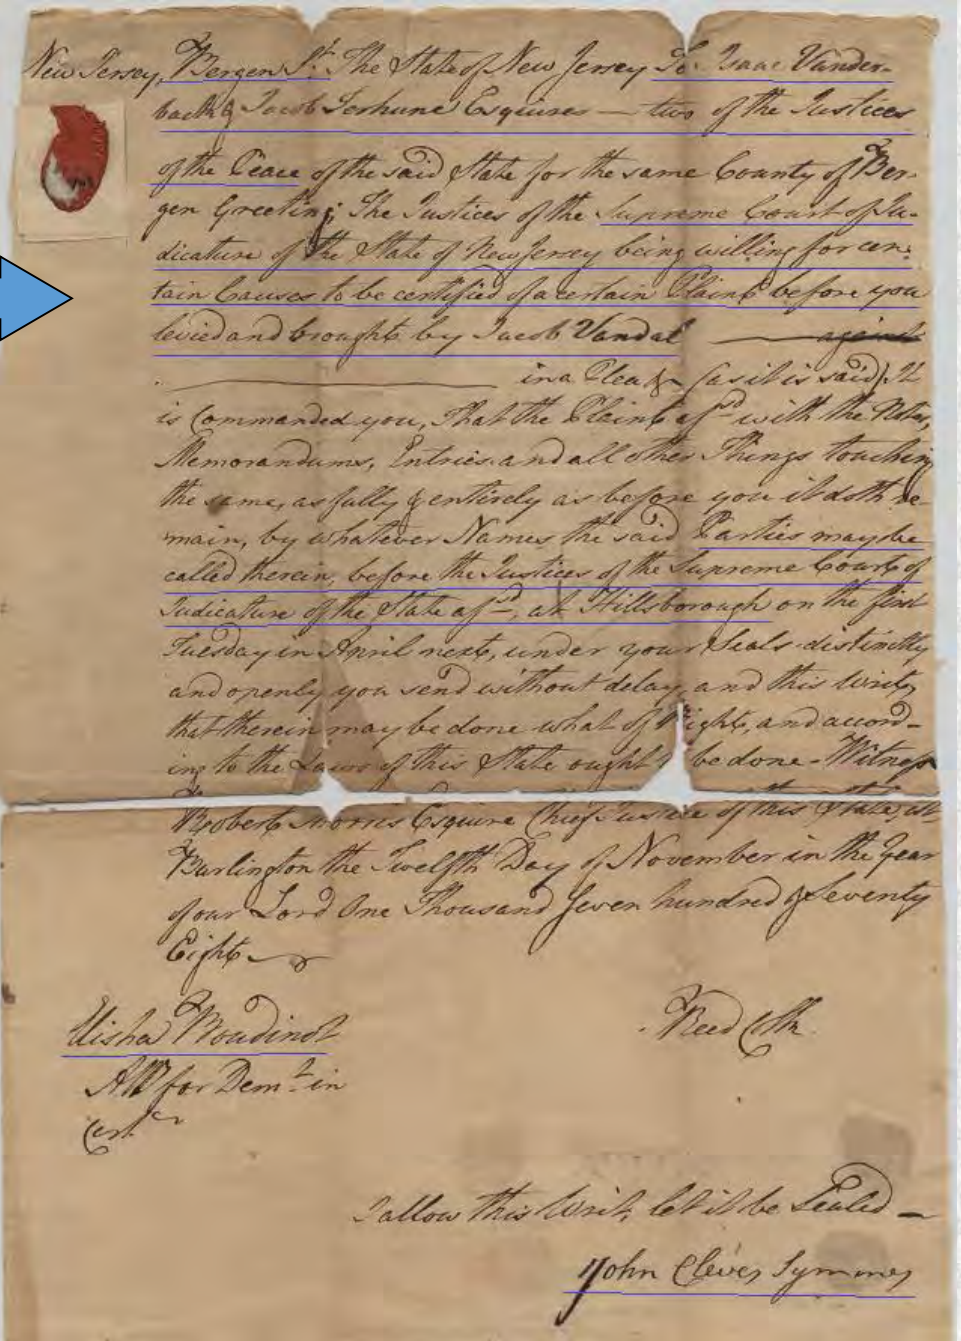 New Jersey, Bergen Ss. The State of New Jersey To Isaac Vander-
back & Jacob Terhune Esquires — two of the Justices
of the Peace of the said State for the same County of Ber-
gen Greeting; The Justices of the Supreme Court of Ju-
dicature of the State of New Jersey being willing for cer-
tain Causes to be certified of a certain Plaint before you
levied and brought by Jacob Vandal — against
in a Plea &c (as it is said) It
is Commanded you, That the Plaint afsd with the Notes,
Memorandums, Entries and all other Things touching
the same, as fully & entirely as before you it doth re-
main, by whatever Names the said Parties may be
called therein, before the Justices of the Supreme Court of
Judicature of the State afsd, at Hillsborough on the first
Tuesday in April next, under your Seals distinctly
and openly you send without delay, and this Writ,
that therein may be done what of Right, and accord-
ing to the Laws of this State ought to be done - Witness
Robert Morris Esquire Chief Justice of this State, at
Burlington the Twelfth Day of November in the Year
of our Lord One Thousand Seven hundred & Seventy
Eight
Elisha Boudinot
Reed Clk
Att for Demt in
Cert
I allow this Writ, let it be Sealed —
John Cleves Symmes